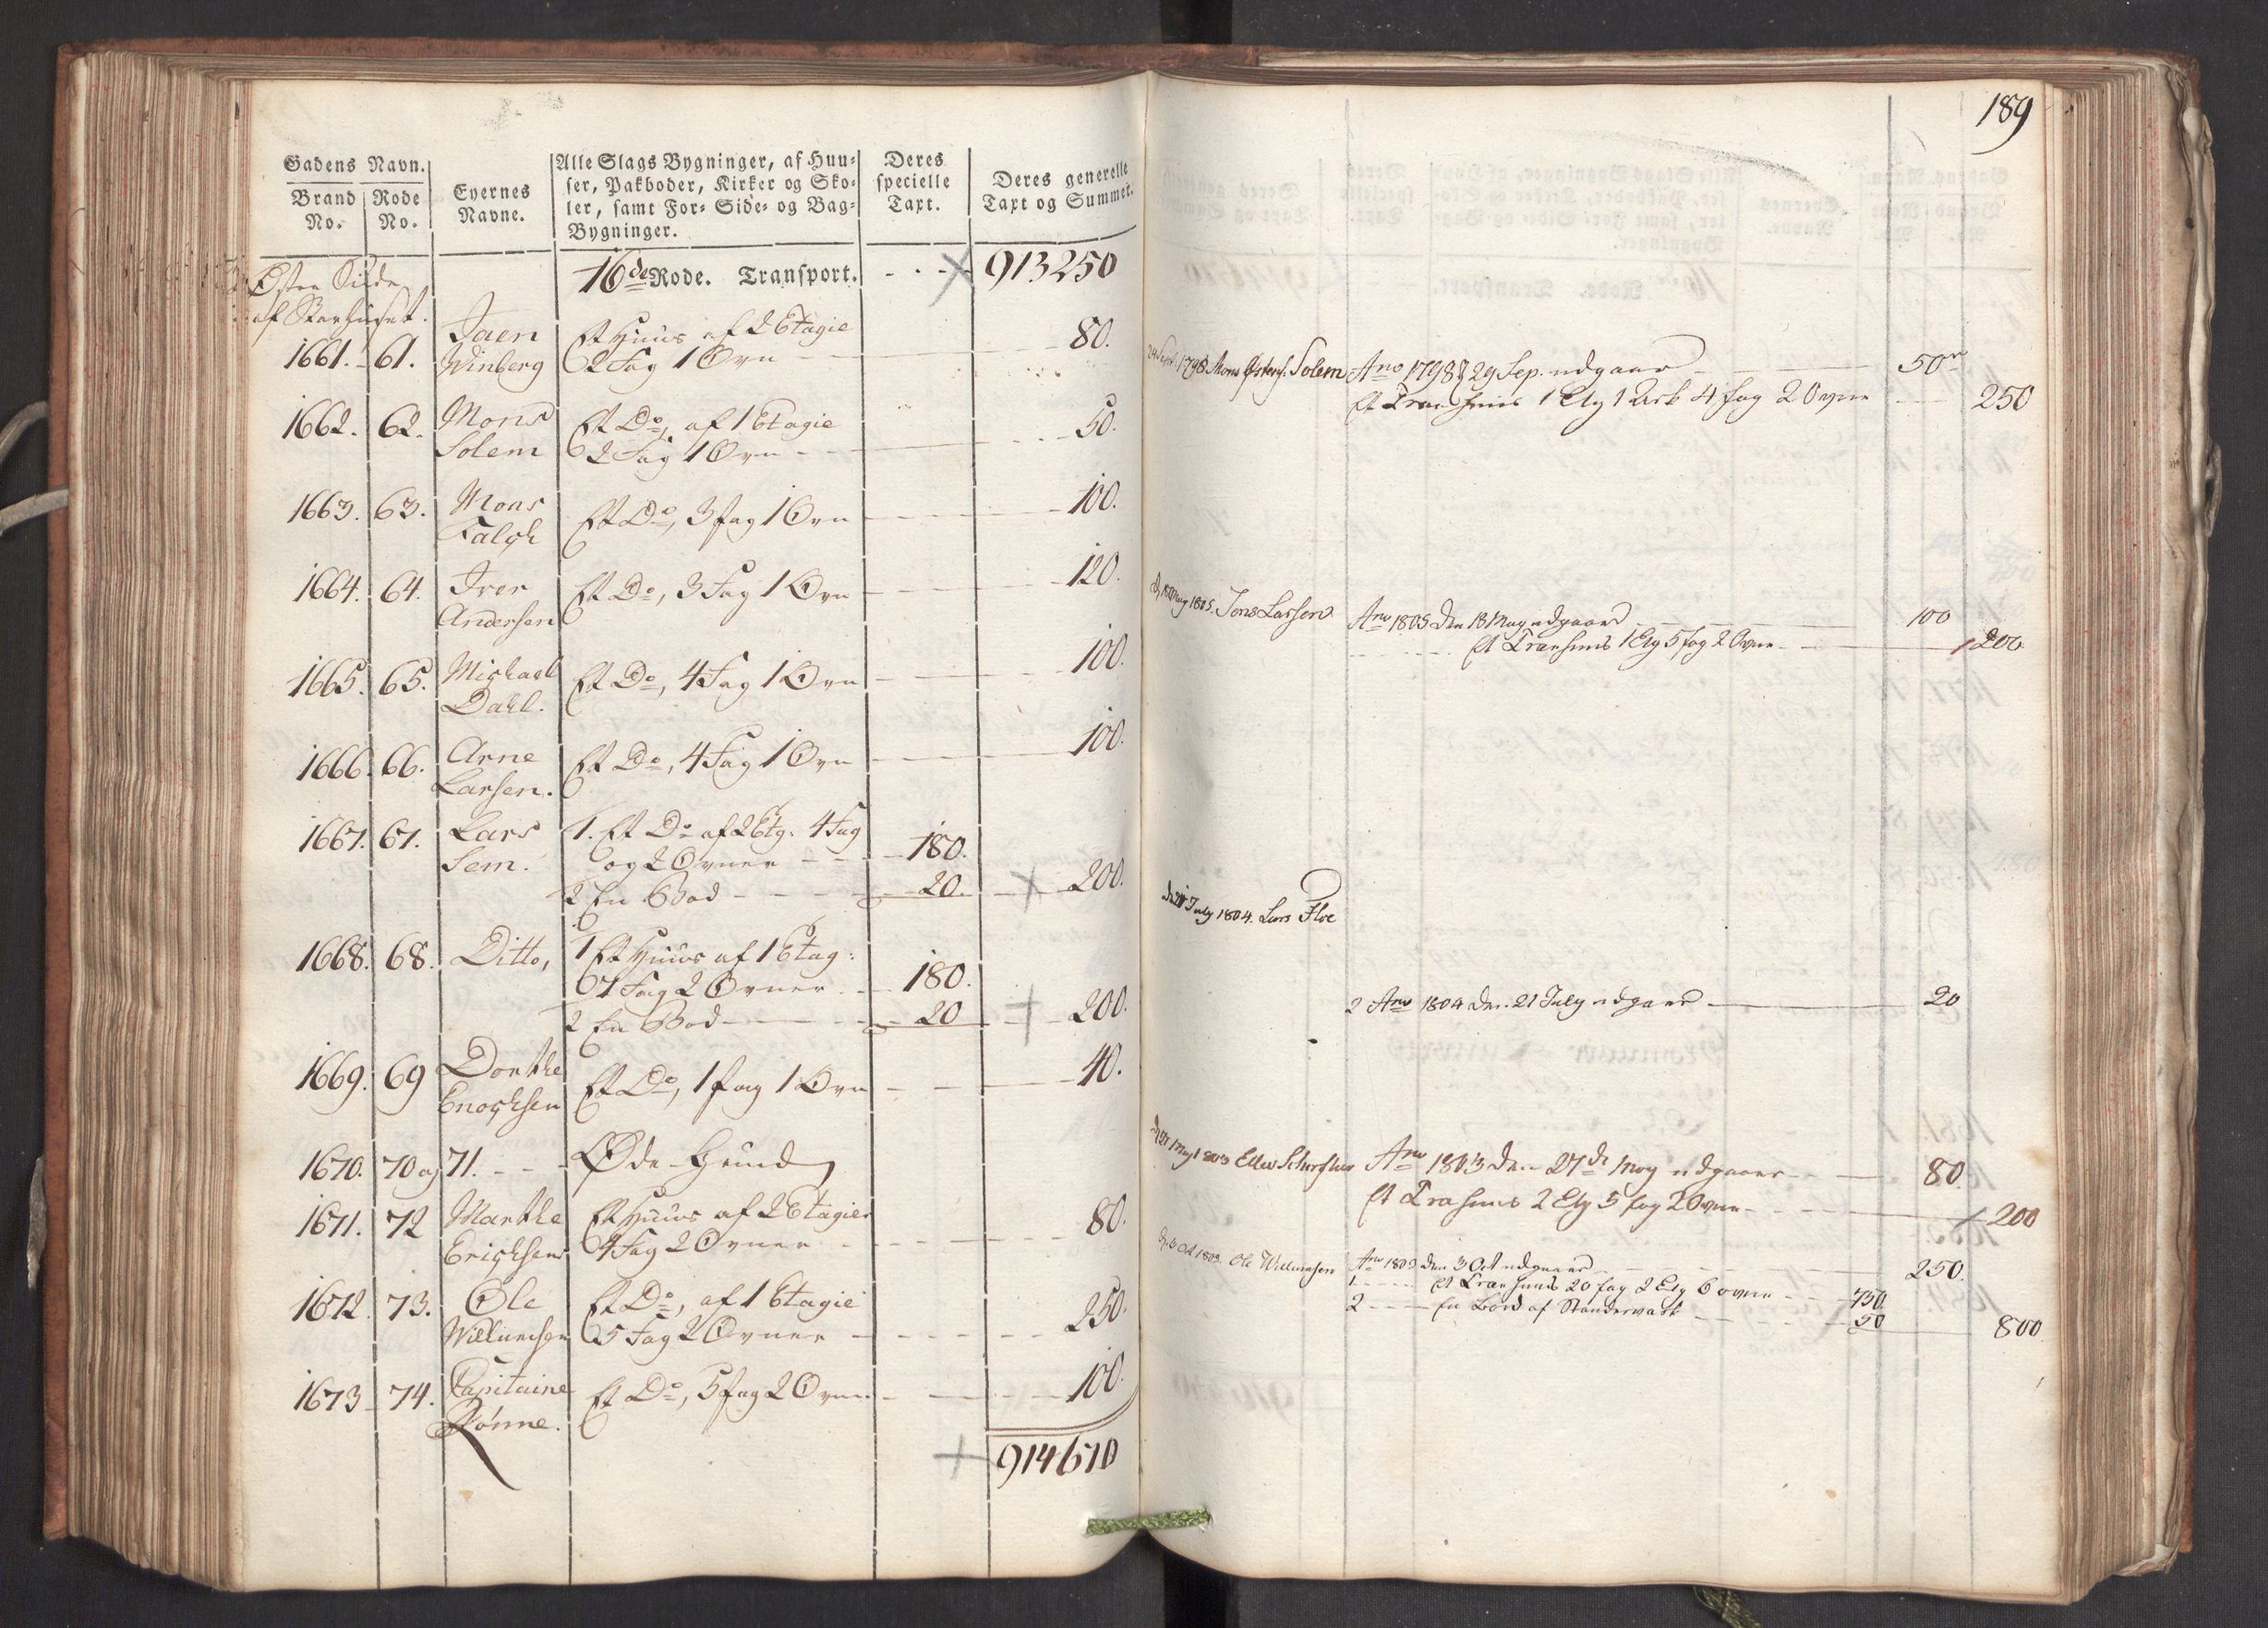 Gadens Navn.
Brand No.
Rode No.
Eyernes Navne.
Alle Slags Bygninger, af Huu-
ser, Pakboder, Kirker og Sko-
ler, samt For- Side- og Bag-
Bygninger.
Deres specielle Taxt.
Deres generelle Taxt og Summer.
16de Rode. Transport. 913250
Østre Siide
af
1661. 61. Winberg
Et Huus af 2 Etagie
2 Fag 1 Ovn 80.
1662. 62. Mons Solem
Et Do, af 1 Etagie
2 Fag 1 Ovn 50.
1663. 63. Mons Falch
Et Do, 3 fag 1 Ovn 100.
1664. 64. Iver Andersen
Et Do, 3 Fag 1 Ovn 120.
1665. 65. Michael Dahl.
Et Do, 4 Fag 1 Ovn 100.
1666. 66. Arne Larsen.
Et Do, 4 Fag 1 Ovn 100.
1667. 67. Lars Sem.
1. Et Do af 2 Etg: 4 Fag
og 2 Ovner 180.
2 En Bod 20. 200.
1668. 68. Ditto,
1 Et Huus af 1 Etag:
7 Fag 2 Ovner 180.
2 En Bod 20 200.
1669. 69 Dorthe Enochsen
Et Do, 1 fag 1 Ovn 40.
1670. 70 og 71. Øde Grund
1671. 72 Marthe Erichsen
Et Huus af 2 Etagier
4 Fag 2 Ovner 80.
1672. 73. Ole Willumsen
Et Do, af 1 Etagie
5 Fag 2 Ovner 250.
1673 74. Capitaine Rønne.
Et Do, 5 fag 2 Ovner 100.
914670
189
1798 Mons Solem Ano 1798 d 29 Sep. udgaar 50
Et Træehuus 1 Etg 1 Ark 4 fag 2 Ovne 250
1805. Jons Larsen Ano 1805 den 18 May udgaaer 100
Et Træehuus 1 Etg 5 fag 2 Ovne 200
July 1804. Lars Floe
2 Ano 1804 den 21 July udgaaer 20
May 1803 Ano 1803 den 27de May udgaaer 80.
Et Træhuus 2 Etg 5 fag 2 Ovne 200
Oct 1809. Ole Willumsen Ano 1809 den 3 Oct udgaaer 250.
1 Et Træehuus 20 fag 2 Etg 6 ovne 750.
2 En Bod af Standerværk 50 800